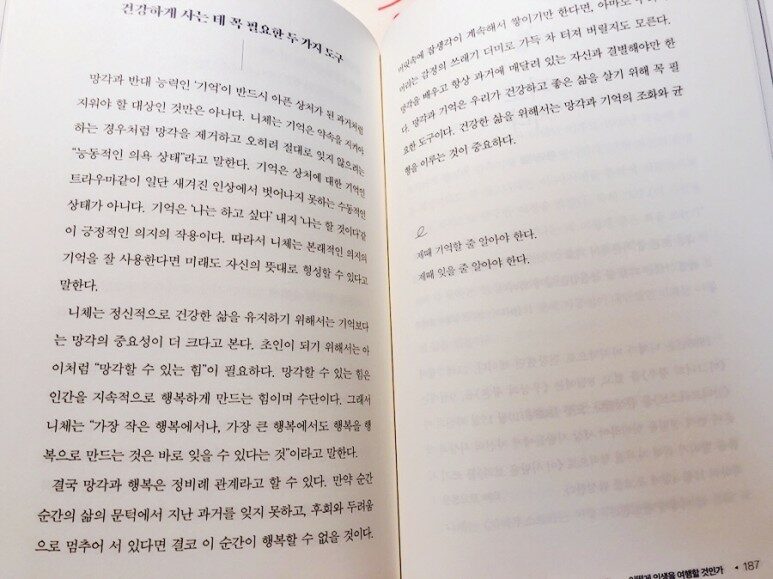 건강하게 사는 데 꼭 필요한 두 가지 도구
망각과 반대 능력인 ‘기억’이 반드시 아픈 상처가 된 과거처럼
지워야 할 대상인 것만은 아니다. 니체는 기억은 약속을 지켜야
하는 경우처럼 망각을 제거하고 오히려 절대로 잊지 않으려는
“능동적인 의욕 상태”라고 말한다. 기억은 상처에 대한 기억인
트라우마같이 일단 새겨진 인상에서 벗어나지 못하는 수동적인
상태가 아니다. 기억은 ‘나는 하고 싶다’ 내지 ‘나는 할 것이다’같
이 긍정적인 의지의 작용이다. 따라서 니체는 본래적인 의지의
기억을 잘 사용한다면 미래도 자신의 뜻대로 형성할 수 있다고
말한다.
니체는 정신적으로 건강한 삶을 유지하기 위해서는 기억보다
는 망각의 중요성이 더 크다고 본다. 초인이 되기 위해서는 아
이처럼 “망각할 수 있는 힘”이 필요하다. 망각할 수 있는 힘은
인간을 지속적으로 행복하게 만드는 힘이며 수단이다. 그래서
니체는 “가장 작은 행복에서나, 가장 큰 행복에서도 행복을 행
복으로 만드는 것은 바로 잊을 수 있다는 것”이라고 말한다.
결국 망각과 행복은 정비례 관계라고 할 수 있다. 만약 순간
순간의 삶의 문턱에서 지난 과거를 잊지 못하고, 후회와 두려움
으로 멈추어 서 있다면 결코 이 순간이 행복할 수 없을 것이다.
머릿속에 잡생각이 계속해서 쌓이기만 한다면, 아마도 우리
머리는 감정의 쓰레기 더미로 가득 차 터져 버릴지도 모른다.
망각을 배우고 항상 과거에 매달려 있는 자신과 결별해야만 한
다. 망각과 기억은 우리가 건강하고 좋은 삶을 살기 위해 꼭 필
요한 도구이다. 건강한 삶을 위해서는 망각과 기억의 조화와 균
형을 이루는 것이 중요하다.
제때 기억할 줄 알아야 한다.
제때 잊을 줄 알아야 한다.
인생을 여행할 것인가 • 187